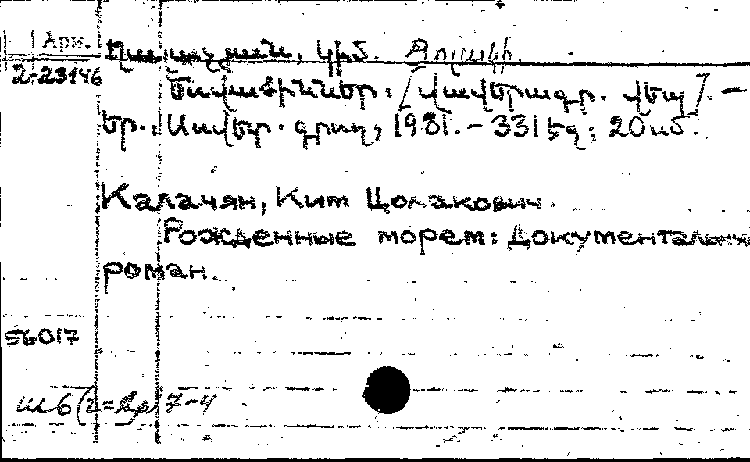 Арм.
Ղալաչյան, Կիմ. Ցոլակի.
2-23146
Ծովածիններ: [Վավերագր. վեպ]. —
Եր.: Սովետ. գրող, 1981. - 331 էջ; 20 սմ.
Калачян, Ким Цолакович.
Рожденные морем: Документальный
роман.
56017
ш6(2=Ар)7-4